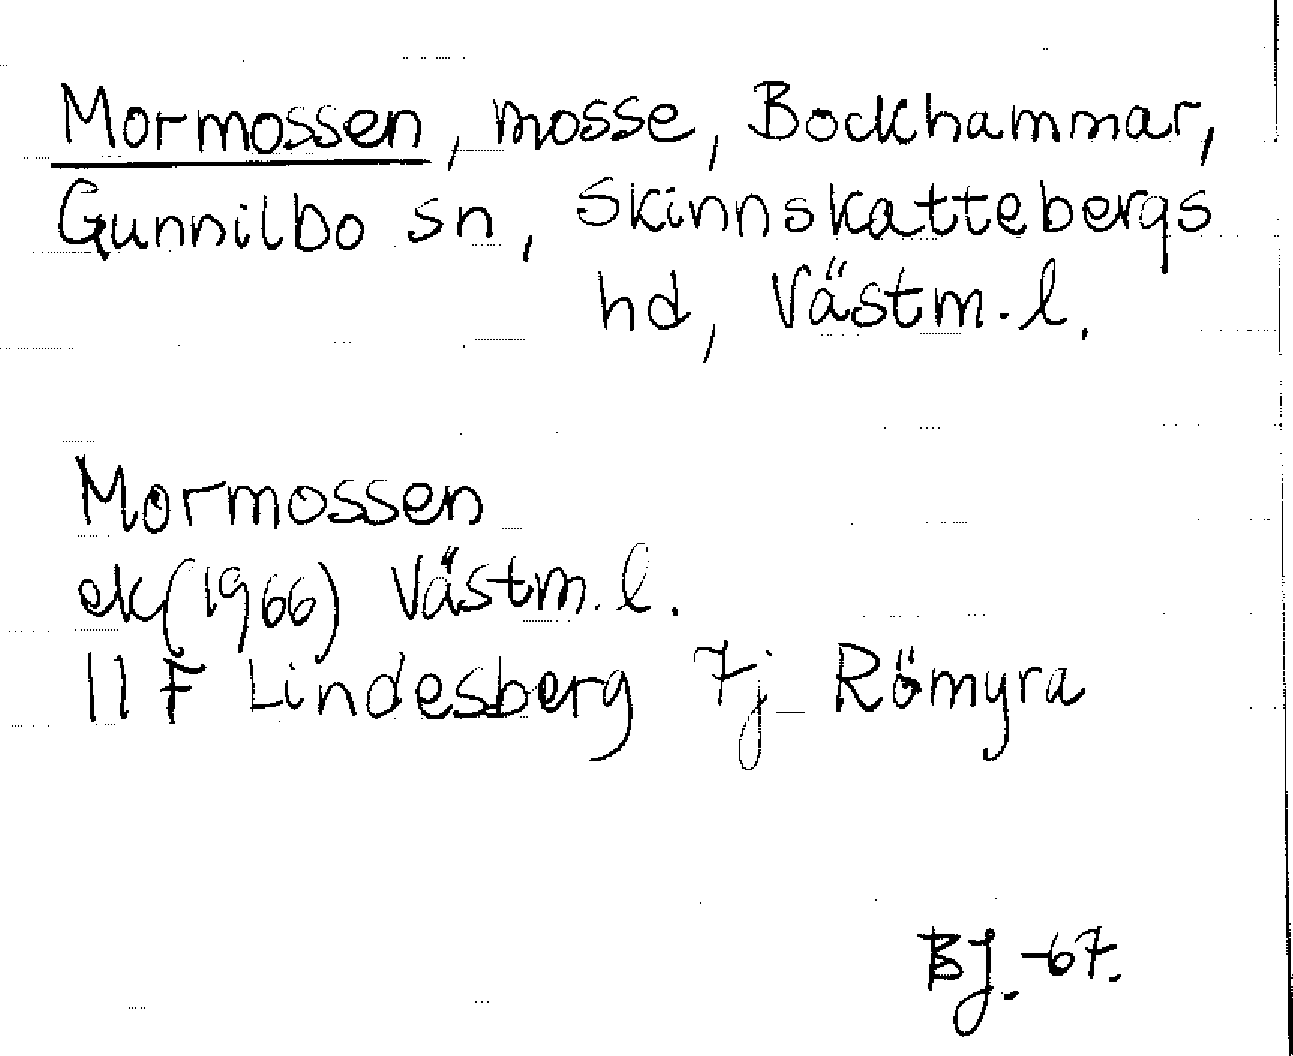 Mormossen, mosse, Bockhammar,
Gunnilbo sn, Skinnskattebergs
hd, Västm. l.
Mormossen
ek (1966) Västm. l.
11 F Lindesberg 7j Römyra
BJ. -67.